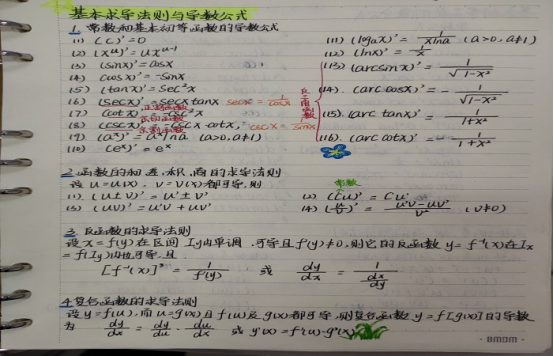 基本求导法则与导数公式
1. 常数和基本初等函数的导数公式
(1) (C)'=0
(2) (x^u)'=ux^{u-1}
(3) (sinx)'=cosx
(4) (cosx)'=-sinx
(5) (tanx)'=sec²x
(6) (secx)'=secxtanx secx=1/cosx
(7) (cotx)'=-csc²x
(8) (cscx)'=-cscx·cotx, cscx=1/sinx
(9) (a^x)'=a^x lna (a>0,a≠1)
(10) (e^x)'=e^x
(11) (logax)'=1/xlna (a>0,a≠1)
(12) (lnx)'=1/x
反三角函数
(13) (arcsinx)'=1/√1-x²
(14) (arccosx)'=-1/√1-x²
(15) (arctanx)'=1/1+x²
(16) (arccotx)'=-1/1+x²
2. 函数的和、差、积、商的求导法则
设u=u(x), v=v(x)都可导,则
(1) (u±v)'=u'±v'
常数
(2) (Cu)'=Cu'
(3) (uv)'=u'v+uv'
(4) (u/v)'=u'v-uv'/v² (v≠0)
3. 反函数的求导法则
设x=f(y)在区间Iy内单调、可导且f'(y)≠0,则它的反函数y=f⁻¹(x)在Ix
=f(Iy)内也可导,且
[f⁻¹(x)]'=1/f'(y) 或 dy/dx=1/(dx/dy)
4. 复合函数的求导法则
设y=f(u),而u=g(x)且f(u)及g(x)都可导,则复合函数y=f[g(x)]的导数
为 dy/dx=dy/du·du/dx 或 y'(x)=f'(u)·g'(x)